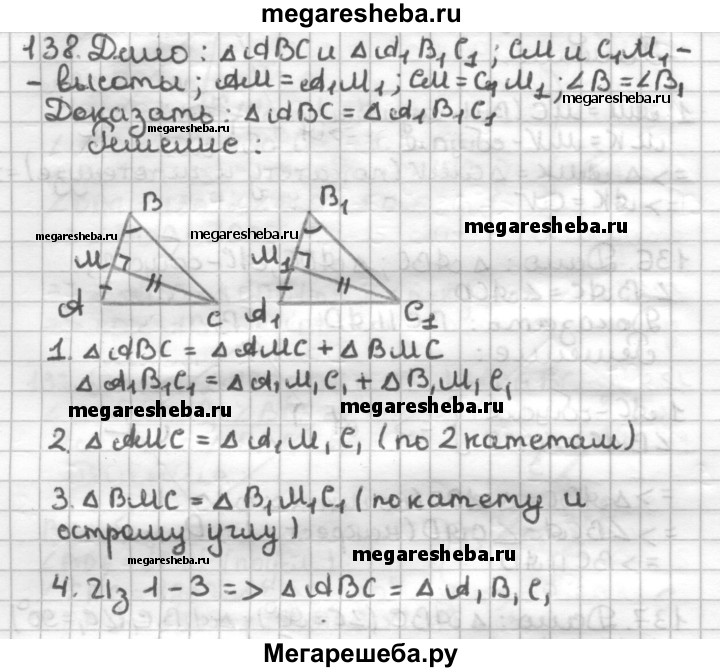 megaresheba.ru
138. Дано: △ABC и △A₁B₁C₁; CM и C₁M₁ -
- высоты; AM = A₁M₁; CM = C₁M₁; ∠B = ∠B₁
megaresheba.ru
Доказать: △ABC = △A₁B₁C₁
megaresheba.ru
Решение:
B B₁
megaresheba.ru megaresheba.ru megaresheba.ru
M M₁
A C A₁ C₁
1. △ABC = △AMC + △BMC
△A₁B₁C₁ = △A₁M₁C₁ + △B₁M₁C₁
megaresheba.ru megaresheba.ru
2. △AMC = △A₁M₁C₁ (по 2 катетам)
3. △BMC = △B₁M₁C₁ (по катету и
острому углу)
megaresheba.ru megaresheba.ru
4. Из 1-3 => △ABC = △A₁B₁C₁
Мегарешеба.ру